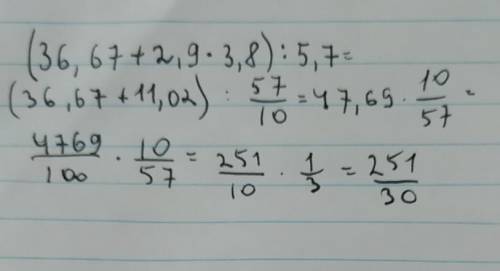 (36,67+2,9·3,8):5,7=
(36,67+11,02) : 57/10 = 47,69 · 10/57 =
4769/100 · 10/57 = 251/10 · 1/3 = 251/30